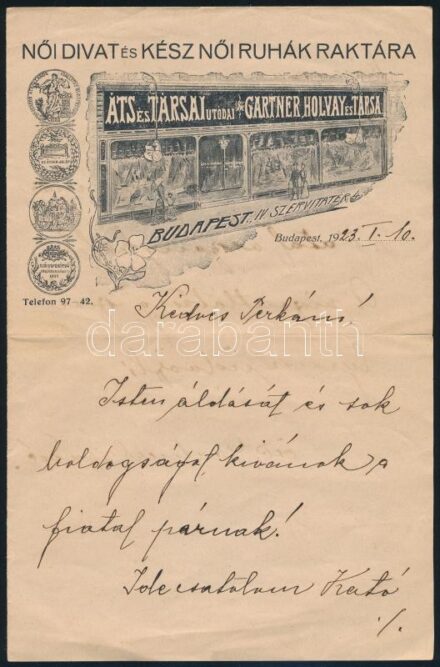 NŐI DIVAT ÉS KÉSZ NŐI RUHÁK RAKTÁRA
ÁTS ÉS TÁRSAI UTÓDAI GÄRTNER, HOLVAY ÉS TÁRSA
BUDAPEST. IV. SZERVITATÉR
Budapest, 1923. I. 10.
Telefon 97—42.
Kedves
Isten áldását és sok
boldogságot kivánok a
fiatal párnak!
Ide csatolom Kató
./.
darabanth